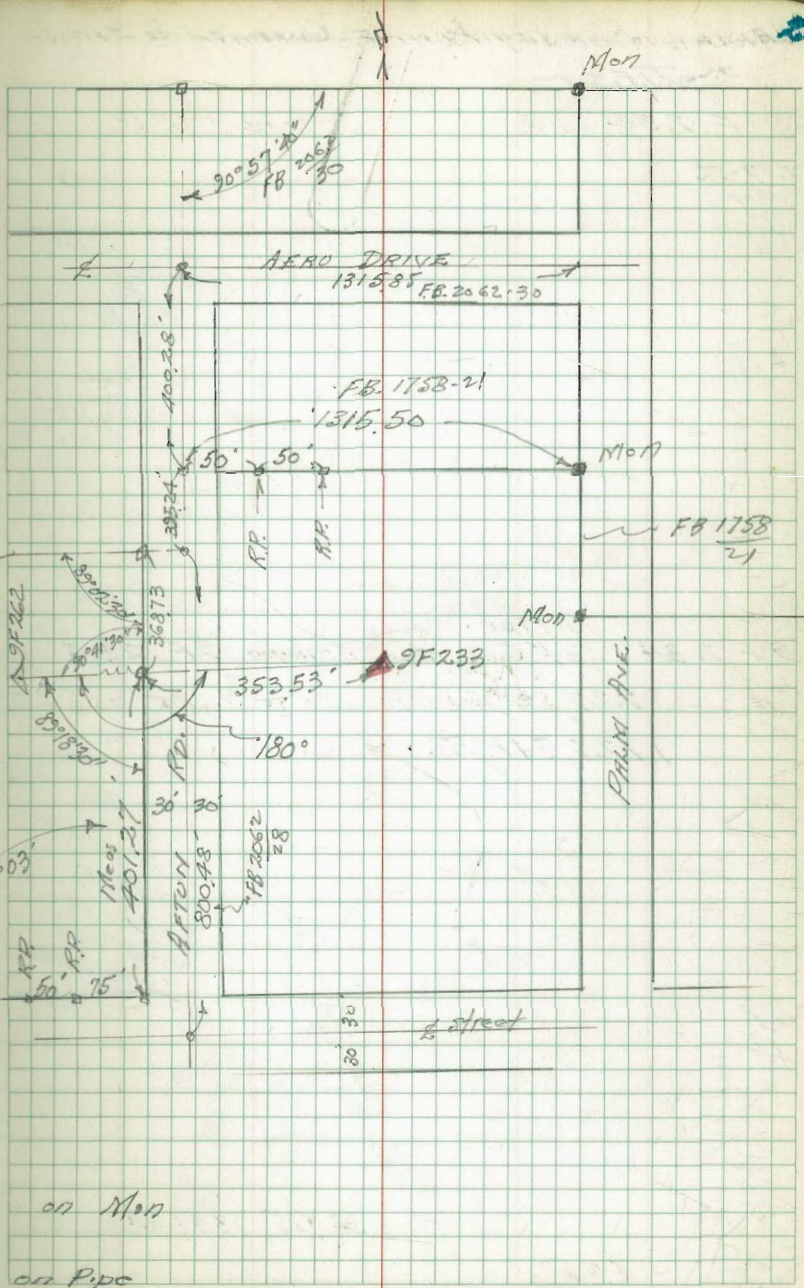 Mon
90°57'40"
FB 2062
30
℄
AERO DRIVE
1315.85
F.B. 2062-30
400.28'
F.B. 1758-21
1315.50
50'
50'
Mon
395.24'
R.P.
R.P.
FB 1758
21
89°02'30"
368.73
9F262
Mon
90°41'30"
9F233
353.53'
89°18'30"
180°
PALM AVE.
30'
30'
Meas
401.27'
AFTON RD.
800.48'
FB 2062
28
03'
R.P.
R.P.
50'
75'
30'
30'
℄ Street
on Mon
on Pipe